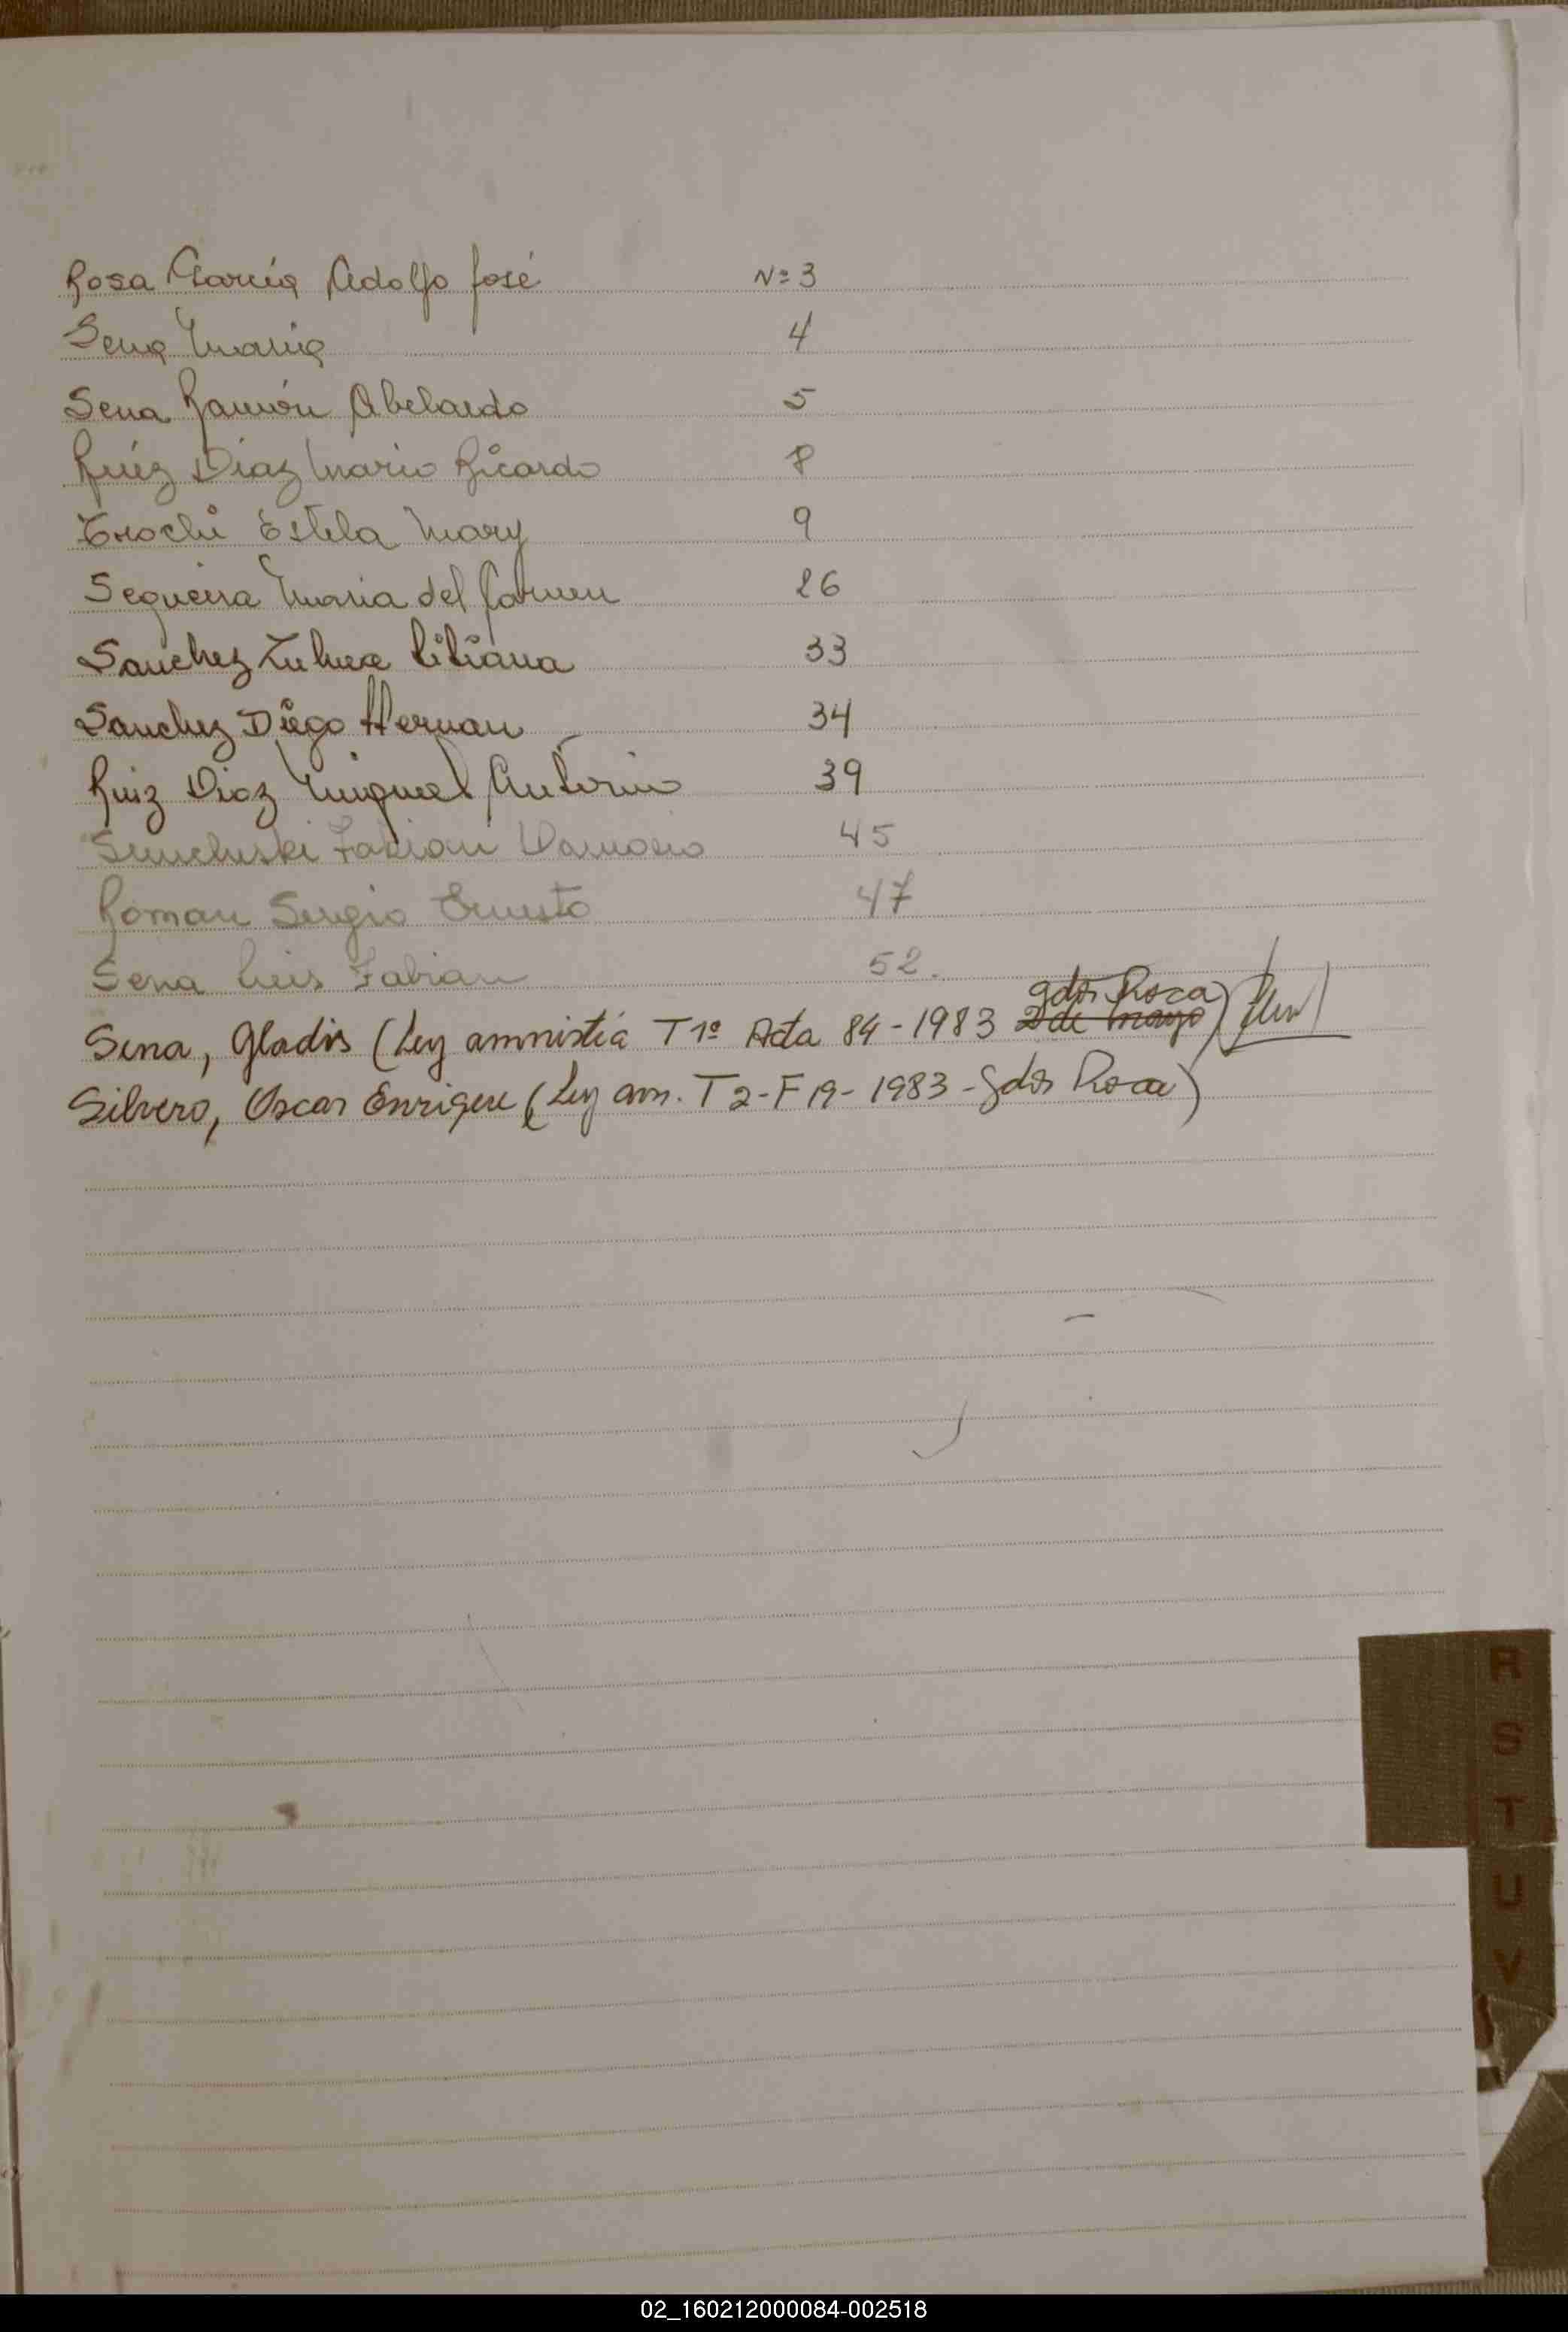 Rosa García Adolfo José Nº 3
Sena Maria 4
Sena Ramón Abelardo 5
Ruíz Diaz Mario Ricardo 8
Trochi Estela Mary 9
Sequeira Maria del Carmen 26
Sanchez Liliana 33
Sanchez Diego Hernan 34
Ruiz Diaz Miguel Antonio 39
Fabian 45
Roman Sergio Ernesto 47
Sena Luis Fabian 52.
gdor Roca)
Sena, Gladis (Ley amnistía T 1º Acta 84-1983 2 de mayo)
Silvero, Oscar Enrique (Ley am. T 2-F 19-1983-Gdor Roca)
R
S
T
U
V
02_160212000084-002518